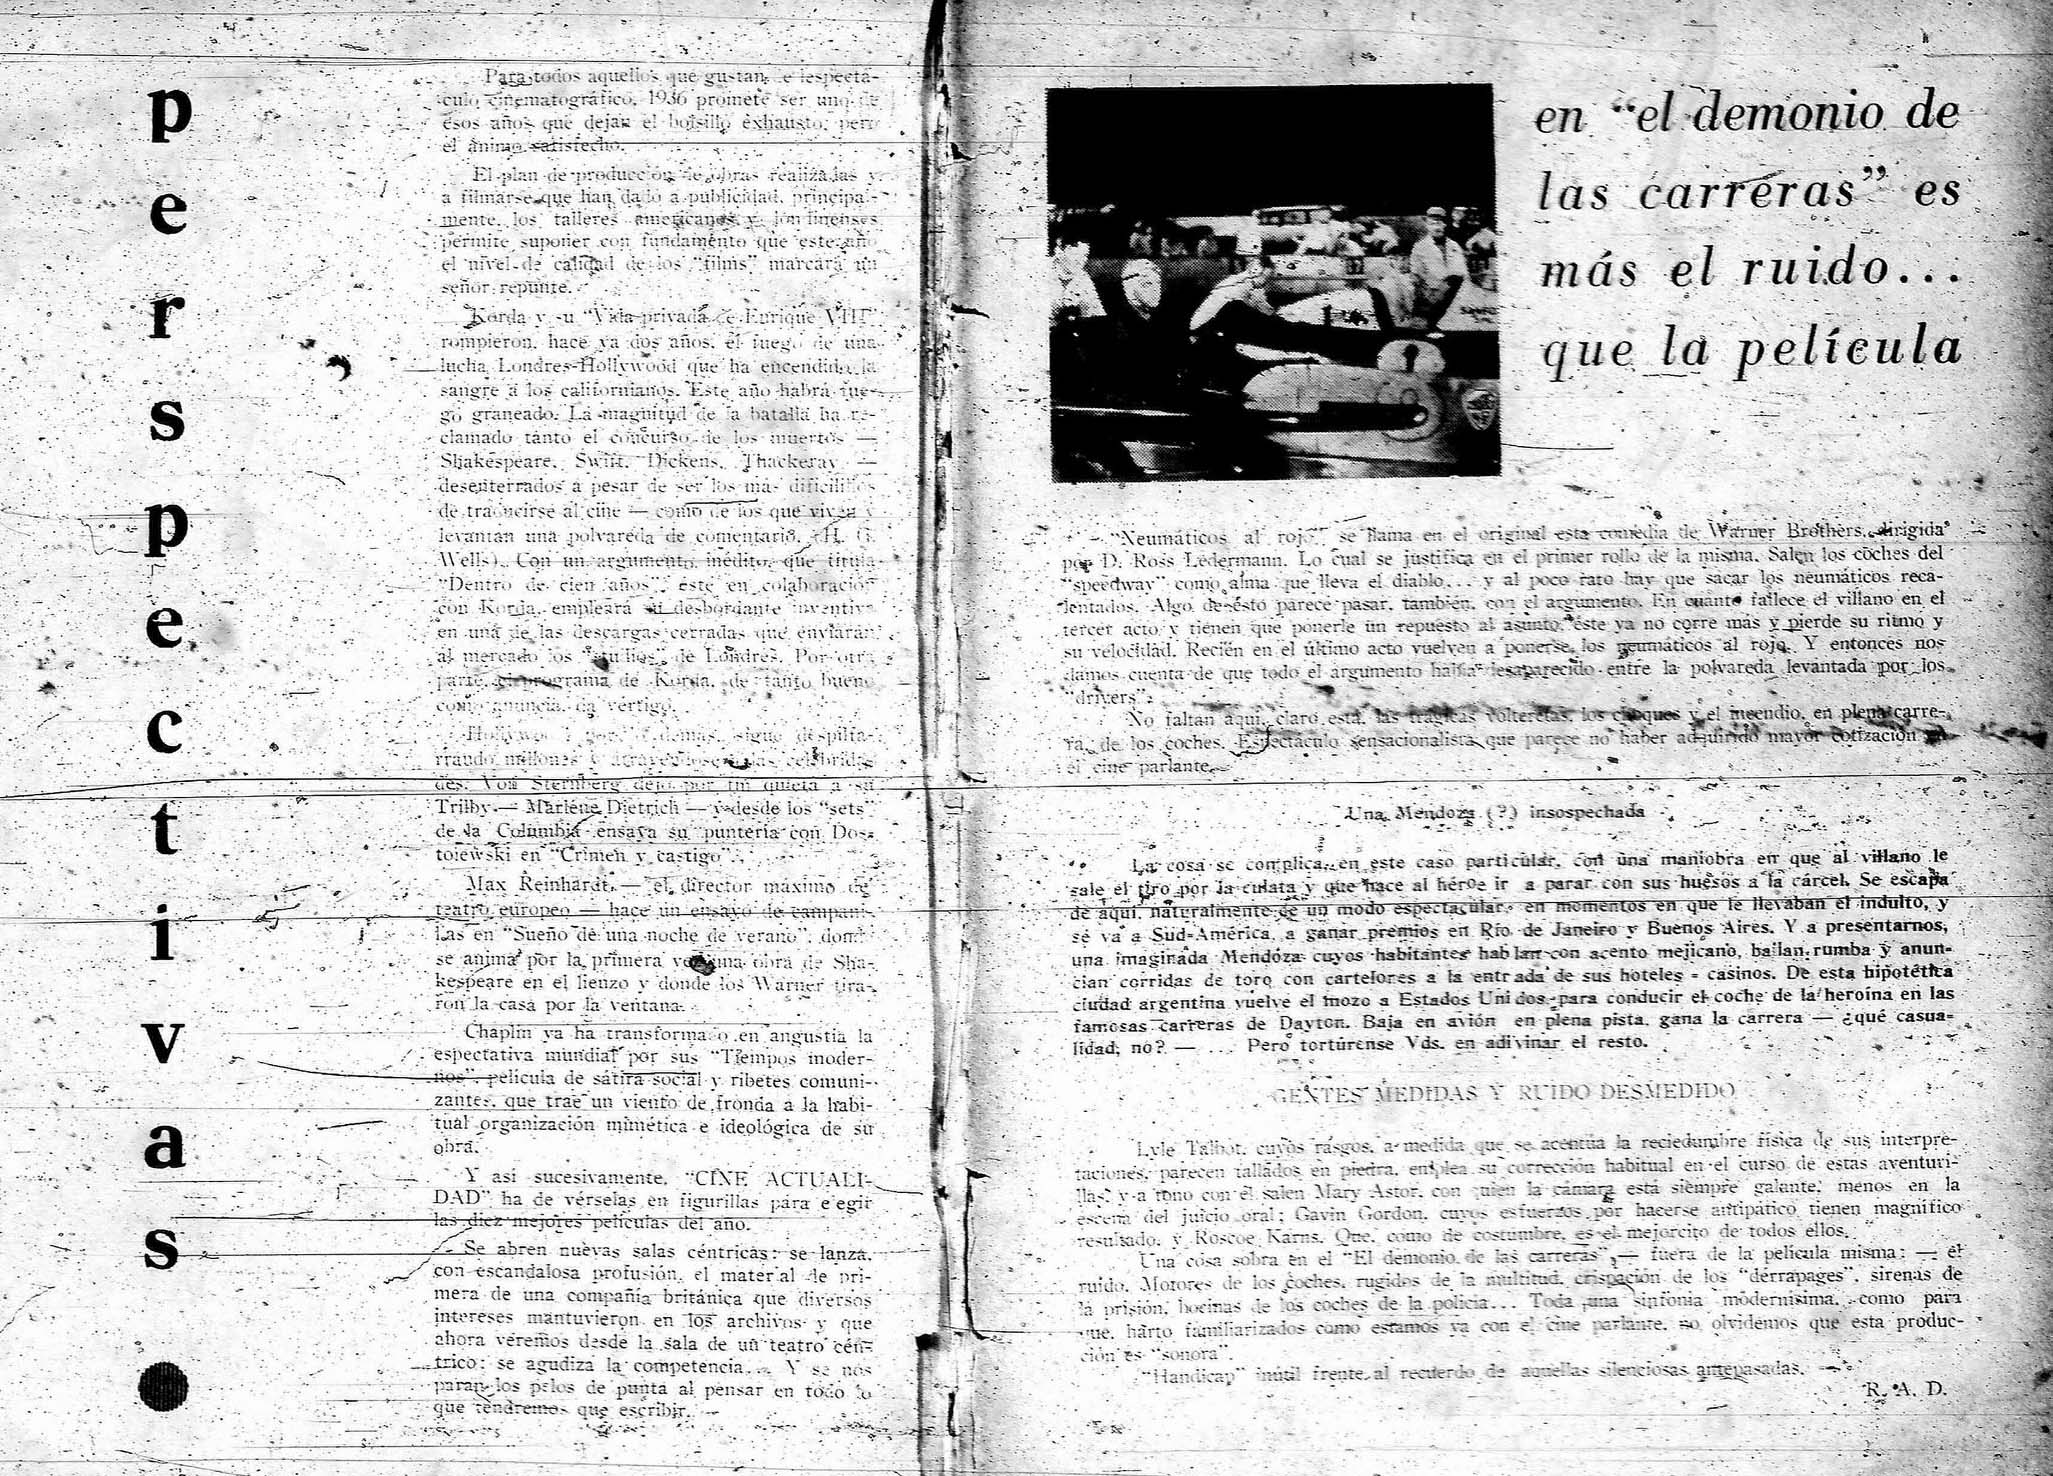 perspectivas
Para todos aquellos que gustan
culo cinematográfico, 1936 promete ser uno de
esos años que dejan el bolsillo exhausto, pero
el ánimo satisfecho.
El plan de producción de obras realizadas y
a filmarse que han dado a publicidad, principal-
mente, los talleres americanos y londinenses
permite suponer con fundamento que este año
el nivel de calidad de los "films" marcará un
señor repunte.
Korda y su "Vida privada de Enrique VIII"
rompieron, hace ya dos años, el fuego de una
lucha Londres-Hollywood que ha encendido la
sangre a los californianos. Este año habrá fue-
go graneado. La magnitud de la batalla ha re-
clamado tanto el concurso de los muertos —
Shakespeare, Swift, Dickens, Thackeray —
desenterrados a pesar de ser los más
de traducirse al cine — como de los que viven y
levantan una polvareda de comentario. (H. G.
Wells). Con un argumento inédito, que titula
"Dentro de cien años", éste en colaboración
con Korda, empleará su desbordante inventiva
en una de las descargas cerradas que enviarán
al mercado los "studios" de Londres. Por otra
parte, el programa de Korda, de tanto bueno
como anuncia, da vértigo.
Hollywood, por lo demás, sigue despilfa-
rrando millones y atrayéndose a las celebrida-
des. Von Sternberg dejó por fin quieta a su
Trilby — Marlene Dietrich — y desde los "sets"
de la Columbia ensaya su puntería con Dos-
toiewski en "Crimen y castigo".
Max Reinhardt — el director máximo de
teatro europeo — hace un ensayo de campani-
llas en "Sueño de una noche de verano", donde
se anima por la primera vez una obra de Sha-
kespeare en el lienzo y donde los Warner tira-
ron la casa por la ventana.
Chaplin ya ha transformado en angustia la
espectativa mundial por sus "Tiempos moder-
nos", película de sátira social y ribetes comuni-
zantes, que trae un viento de fronda a la habi-
tual organización mimética e ideológica de su
obra.
Y así sucesivamente, "CINE ACTUALI-
DAD" ha de vérselas en figurillas para elegir
las diez mejores películas del año.
Se abren nuevas salas céntricas; se lanza,
con escandalosa profusión, el material de pri-
mera de una compañía británica que diversos
intereses mantuvieron en los archivos y que
ahora veremos desde la sala de un teatro cén-
trico; se agudiza la competencia... Y se nos
paran los pelos de punta al pensar en todo lo
que tendremos que escribir.
en "el demonio de
las carreras" es
más el ruido...
que la película
"Neumáticos al rojo" se llama en el original esta comedia de Warner Brothers, dirigida
por D. Ross Ledermann. Lo cual se justifica en el primer rollo de la misma. Salen los coches del
"speedway" como alma que lleva el diablo... y al poco rato hay que sacar los neumáticos reca-
lentados. Algo de ésto parece pasar, también, con el argumento. En cuanto fallece el villano en el
tercer acto y tienen que ponerle un repuesto al asunto, éste ya no corre más y pierde su ritmo y
su velocidad. Recién en el último acto vuelven a ponerse los neumáticos al rojo. Y entonces nos
damos cuenta de que todo el argumento había desaparecido entre la polvareda levantada por los
"drivers".
No faltan aquí, claro está, las trágicas volteretas, los choques y el incendio, en plena carre-
ra, de los coches. Espectáculo sensacionalista que parece no haber adquirido mayor cotización en
el cine parlante.
Una Mendoza (?) insospechada
La cosa se complica, en este caso particular, con una maniobra en que al villano le
sale el tiro por la culata y que hace al héroe ir a parar con sus huesos a la cárcel. Se escapa
de aquí, naturalmente de un modo espectacular, en momentos en que le llevaban el indulto, y
se va a Sud-América, a ganar premios en Río de Janeiro y Buenos Aires. Y a presentarnos,
una imaginada Mendoza cuyos habitantes hablan con acento mejicano, bailan rumba y anun-
cian corridas de toro con cartelores a la entrada de sus hoteles - casinos. De esta hipotética
ciudad argentina vuelve el mozo a Estados Unidos para conducir el coche de la heroína en las
famosas carreras de Dayton. Baja en avión en plena pista, gana la carrera — ¿qué casua-
lidad, no? — ... Pero tortúrense Vds. en adivinar el resto.
GENTES MEDIDAS Y RUIDO DESMEDIDO
Lyle Talbot, cuyos rasgos, a medida que se acentúa la reciedumbre física de sus interpre-
taciones, parecen tallados en piedra, emplea su corrección habitual en el curso de estas aventuri-
llas; y a tono con él salen Mary Astor, con quien la cámara está siempre galante, menos en la
escena del juicio oral; Gavin Gordon, cuyos esfuerzos por hacerse antipático tienen magnífico
resultado, y Roscoe Karns. Que, como de costumbre, es el mejorcito de todos ellos.
Una cosa sobra en el "El demonio de las carreras", — fuera de la película misma: — el
ruido. Motores de los coches, rugidos de la multitud, crispación de los "derrapages", sirenas de
la prisión, bocinas de los coches de la policía... Toda una sinfonía modernísima, como para
que, harto familiarizados como estamos ya con el cine parlante, no olvidemos que esta produc-
ción es "sonora".
"Handicap" inútil frente al recuerdo de aquellas silenciosas antepasadas.
R. A. D.